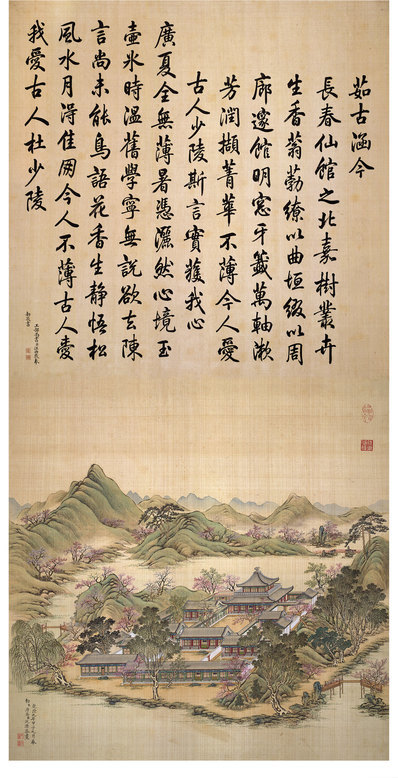 茹古涵今
長春仙館之北嘉樹叢卉
生香蓊勃繚以曲垣綴以周
廊邃館明窓牙籤萬軸漱
芳潤擷菁華不薄今人愛
古人少陵斯言實獲我心
廣夏全無薄暑憑灑然心境玉
壺氷時温舊學寧無說欲去陳
言尚未能鳥語花香生靜悟松
風水月淂佳朋今人不薄古人愛
我愛古人杜少陵
工部尚書臣汪由敦奉
勅敬書